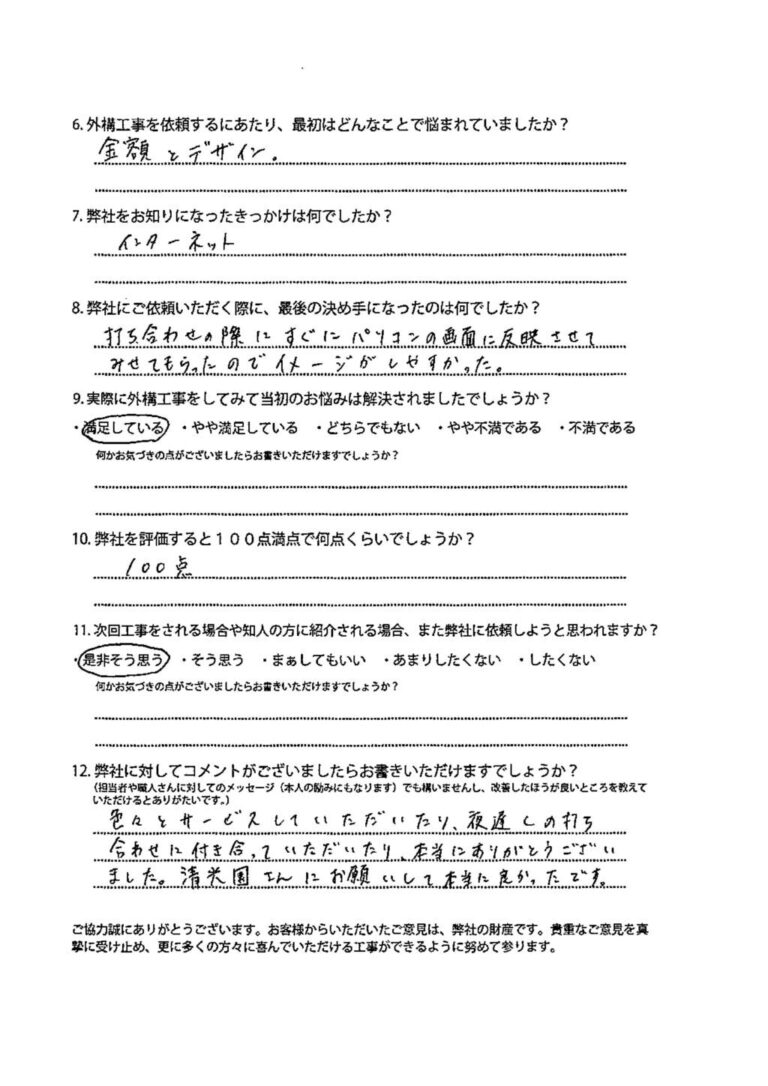 6. 外構工事を依頼するにあたり、最初はどんなことで悩まれていましたか？
金額とデザイン。
7. 弊社をお知りになったきっかけは何でしたか？
インターネット
8. 弊社にご依頼いただく際に、最後の決め手になったのは何でしたか？
打ち合わせの際にすぐにパソコンの画面に反映させて
みせてもらったのでイメージがしやすかった。
9. 実際に外構工事をしてみて当初のお悩みは解決されましたでしょうか？
・満足している ・やや満足している ・どちらでもない ・やや不満である ・不満である
何かお気づきの点がございましたらお書きいただけますでしょうか？
10. 弊社を評価すると１００点満点で何点くらいでしょうか？
100点
11. 次回工事をされる場合や知人の方に紹介される場合、また弊社に依頼しようと思われますか？
・是非そう思う ・そう思う ・まぁしてもいい ・あまりしたくない ・したくない
何かお気づきの点がございましたらお書きいただけますでしょうか？
12. 弊社に対してコメントがございましたらお書きいただけますでしょうか？
（担当者や職人さんに対してのメッセージ（本人の励みにもなります）でも構いませんし、改善したほうが良いところを教えて
いただけるとありがたいです。）
色々とサービスしていただいたり、夜遅くの打ち
合わせに付き合っていただいたり、本当にありがとうござい
ました。清光園さんにお願いして本当に良かったです。
ご協力誠にありがとうございます。お客様からいただいたご意見は、弊社の財産です。貴重なご意見を真
摯に受け止め、更に多くの方々に喜んでいただける工事ができるように努めて参ります。